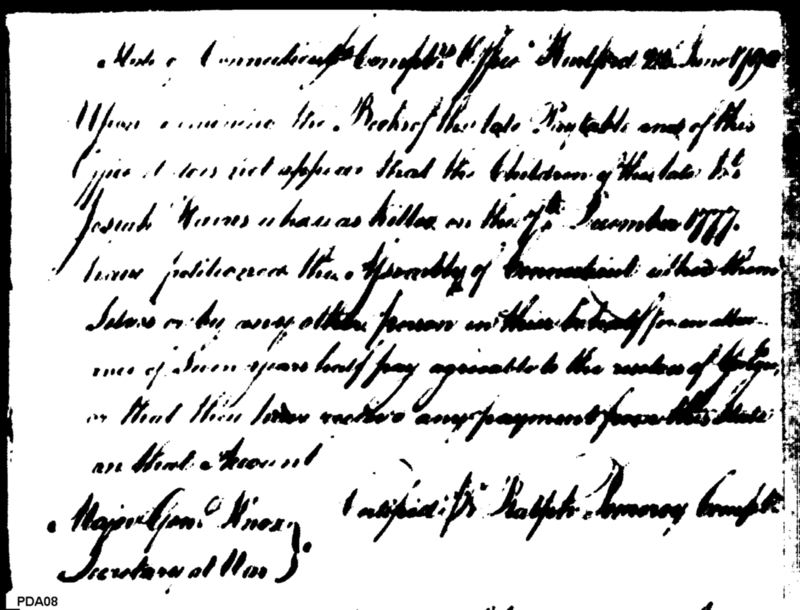 State of Connecticut Compt.rs Office Hartford 22d June 1790
Upon examining the Books of the late Paytable and of this
Office it does not appear that the Children of the late Lt.
Josiah who was killed on the 7th December 1777.
have petitioned the Assembly of Connecticut either them
selves or by any other person in their behalf for an allow
ance of Seven years half pay agreeable to the resolves of Congress,
or that they have received any payment from this State
on that Account
Certified Pr Ralph Pomeroy Compt.
Major Gen.l Knox
Secretary at War
PDA08